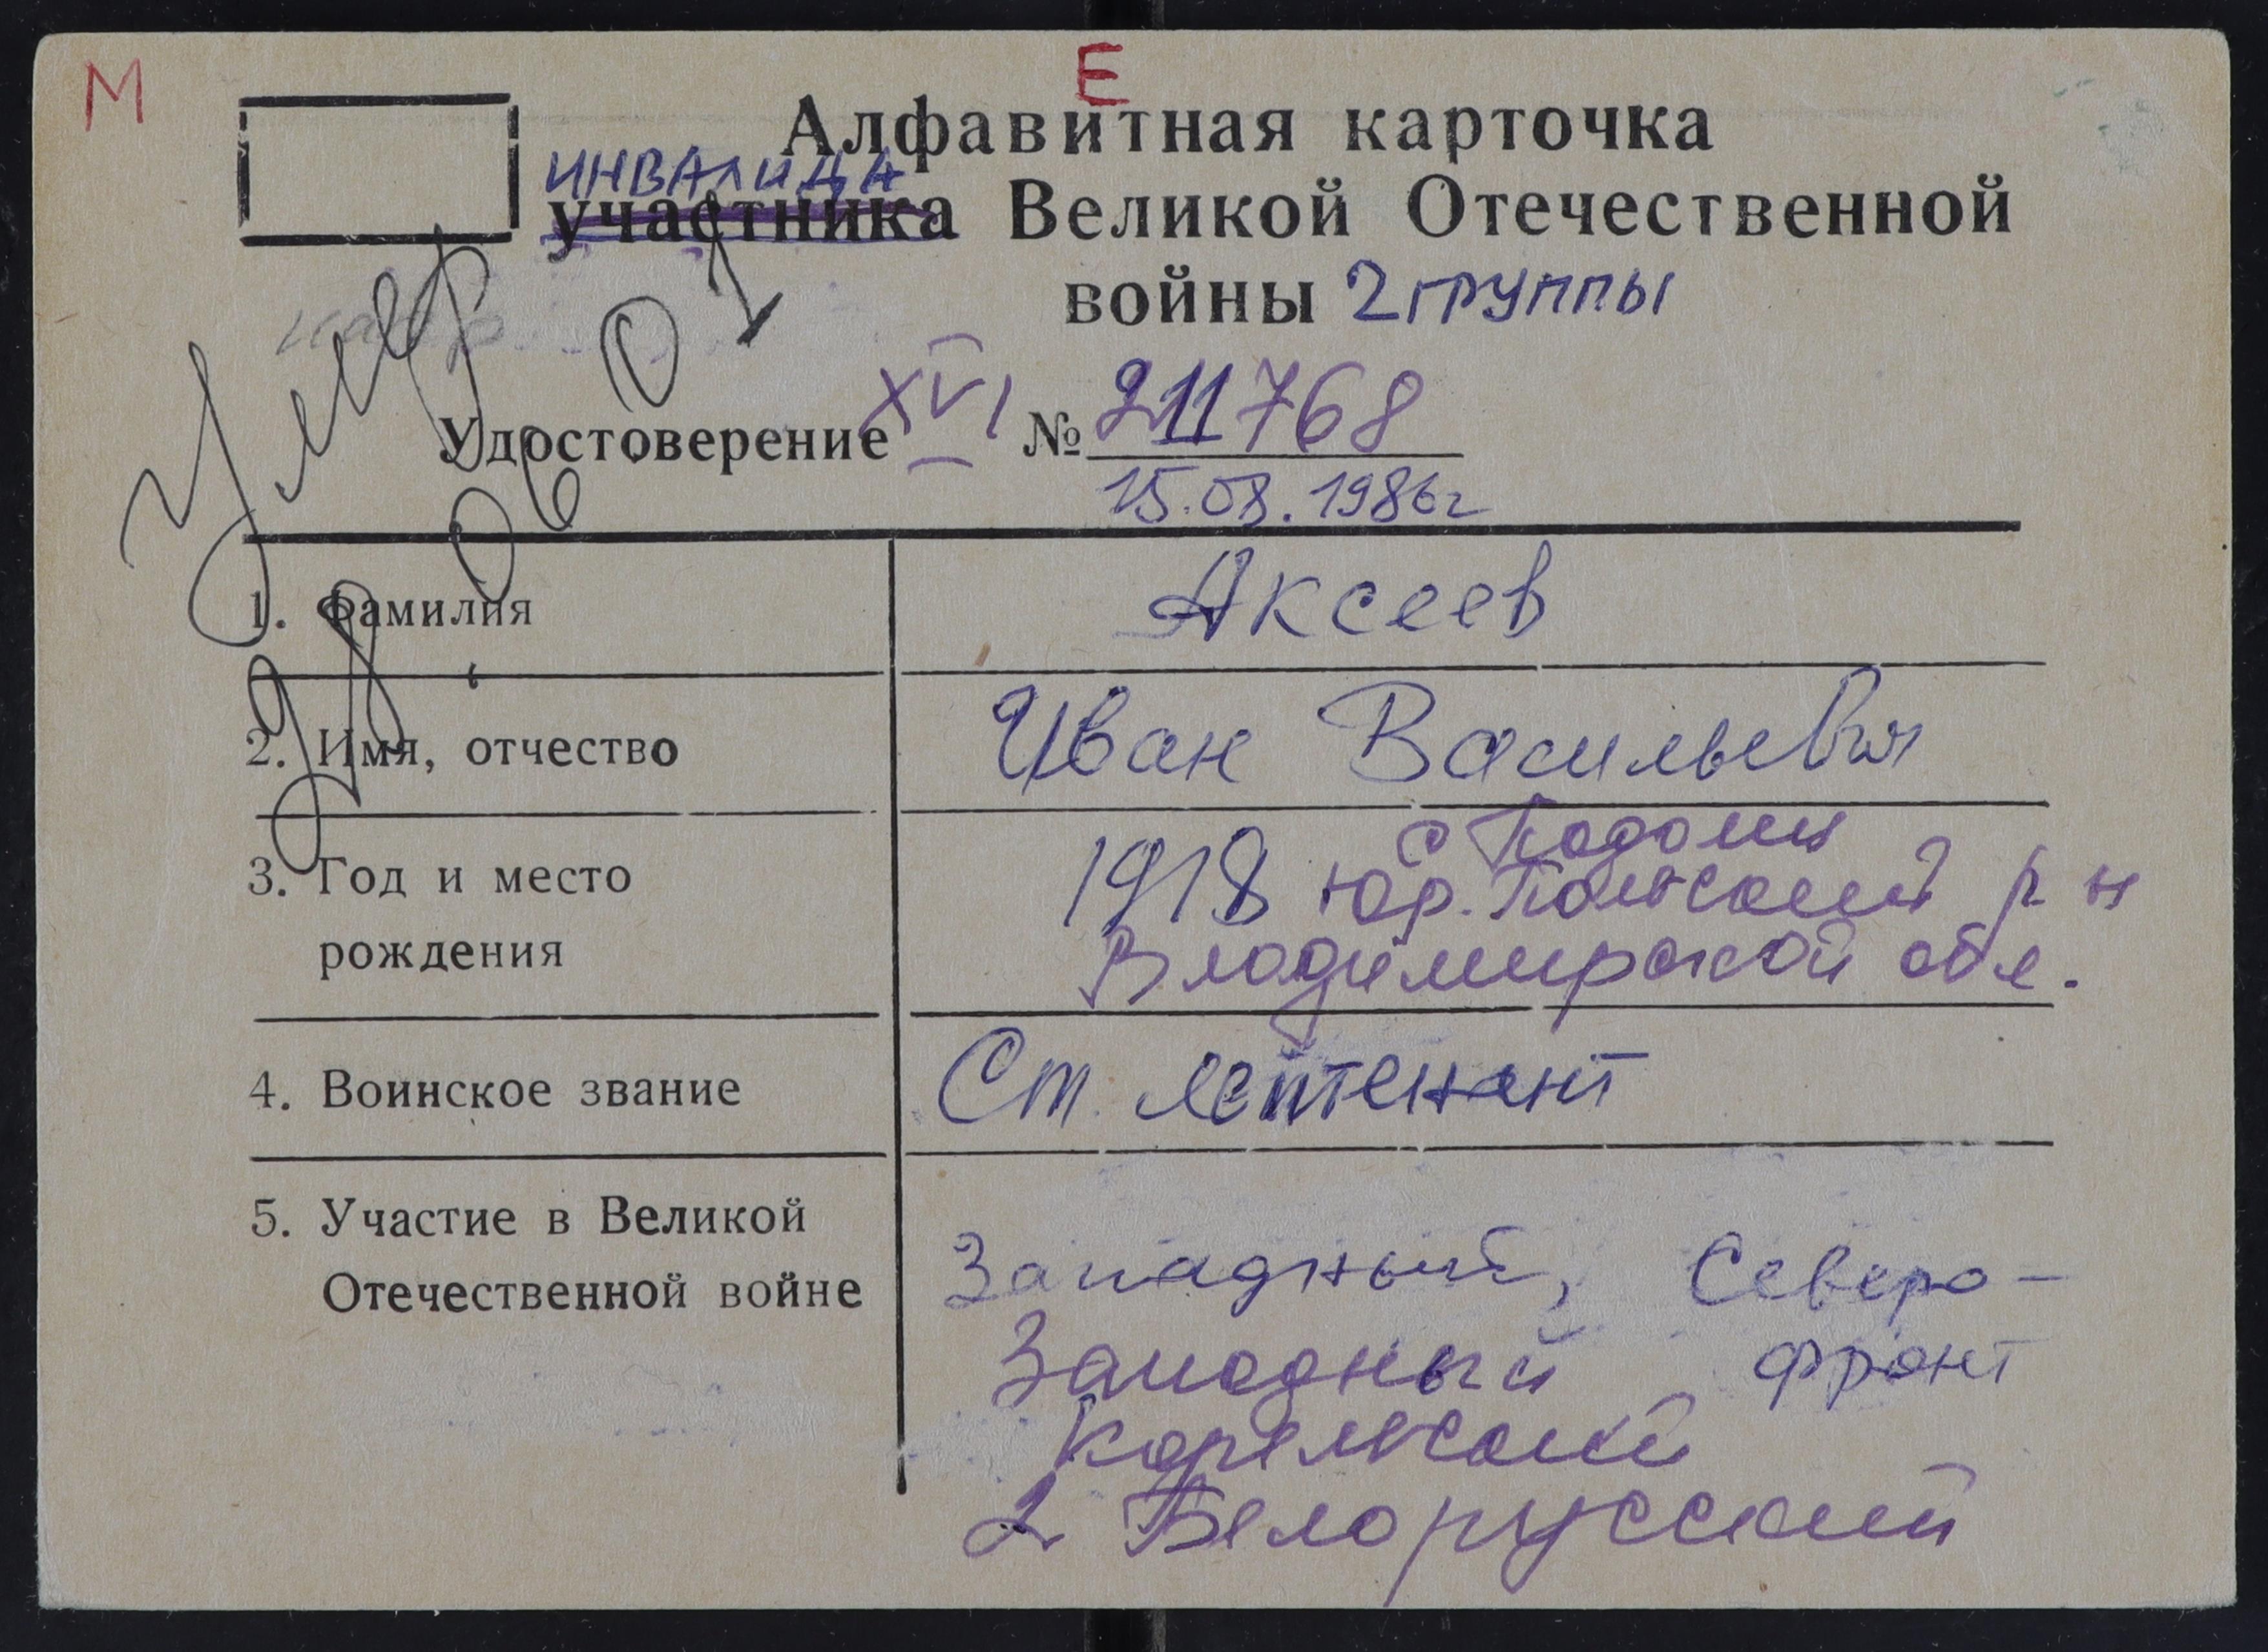 М
Е
Алфавитная карточка
ИНВАЛИДА
участника Великой Отечественной
войны 2 группы
Умер
Удостоверение XVI № 211768
15.08.1986г
1. Фамилия Аксеев
2. Имя, отчество Иван Васильевич
с Подолец
3. Год и место 1918 Юр. Польский р-н
рождения Владимирской обл.
4. Воинское звание Ст. лейтенант
5. Участие в Великой
Отечественной войне Западный, Северо-
Западный фронт
Карельский
2 Белорусский